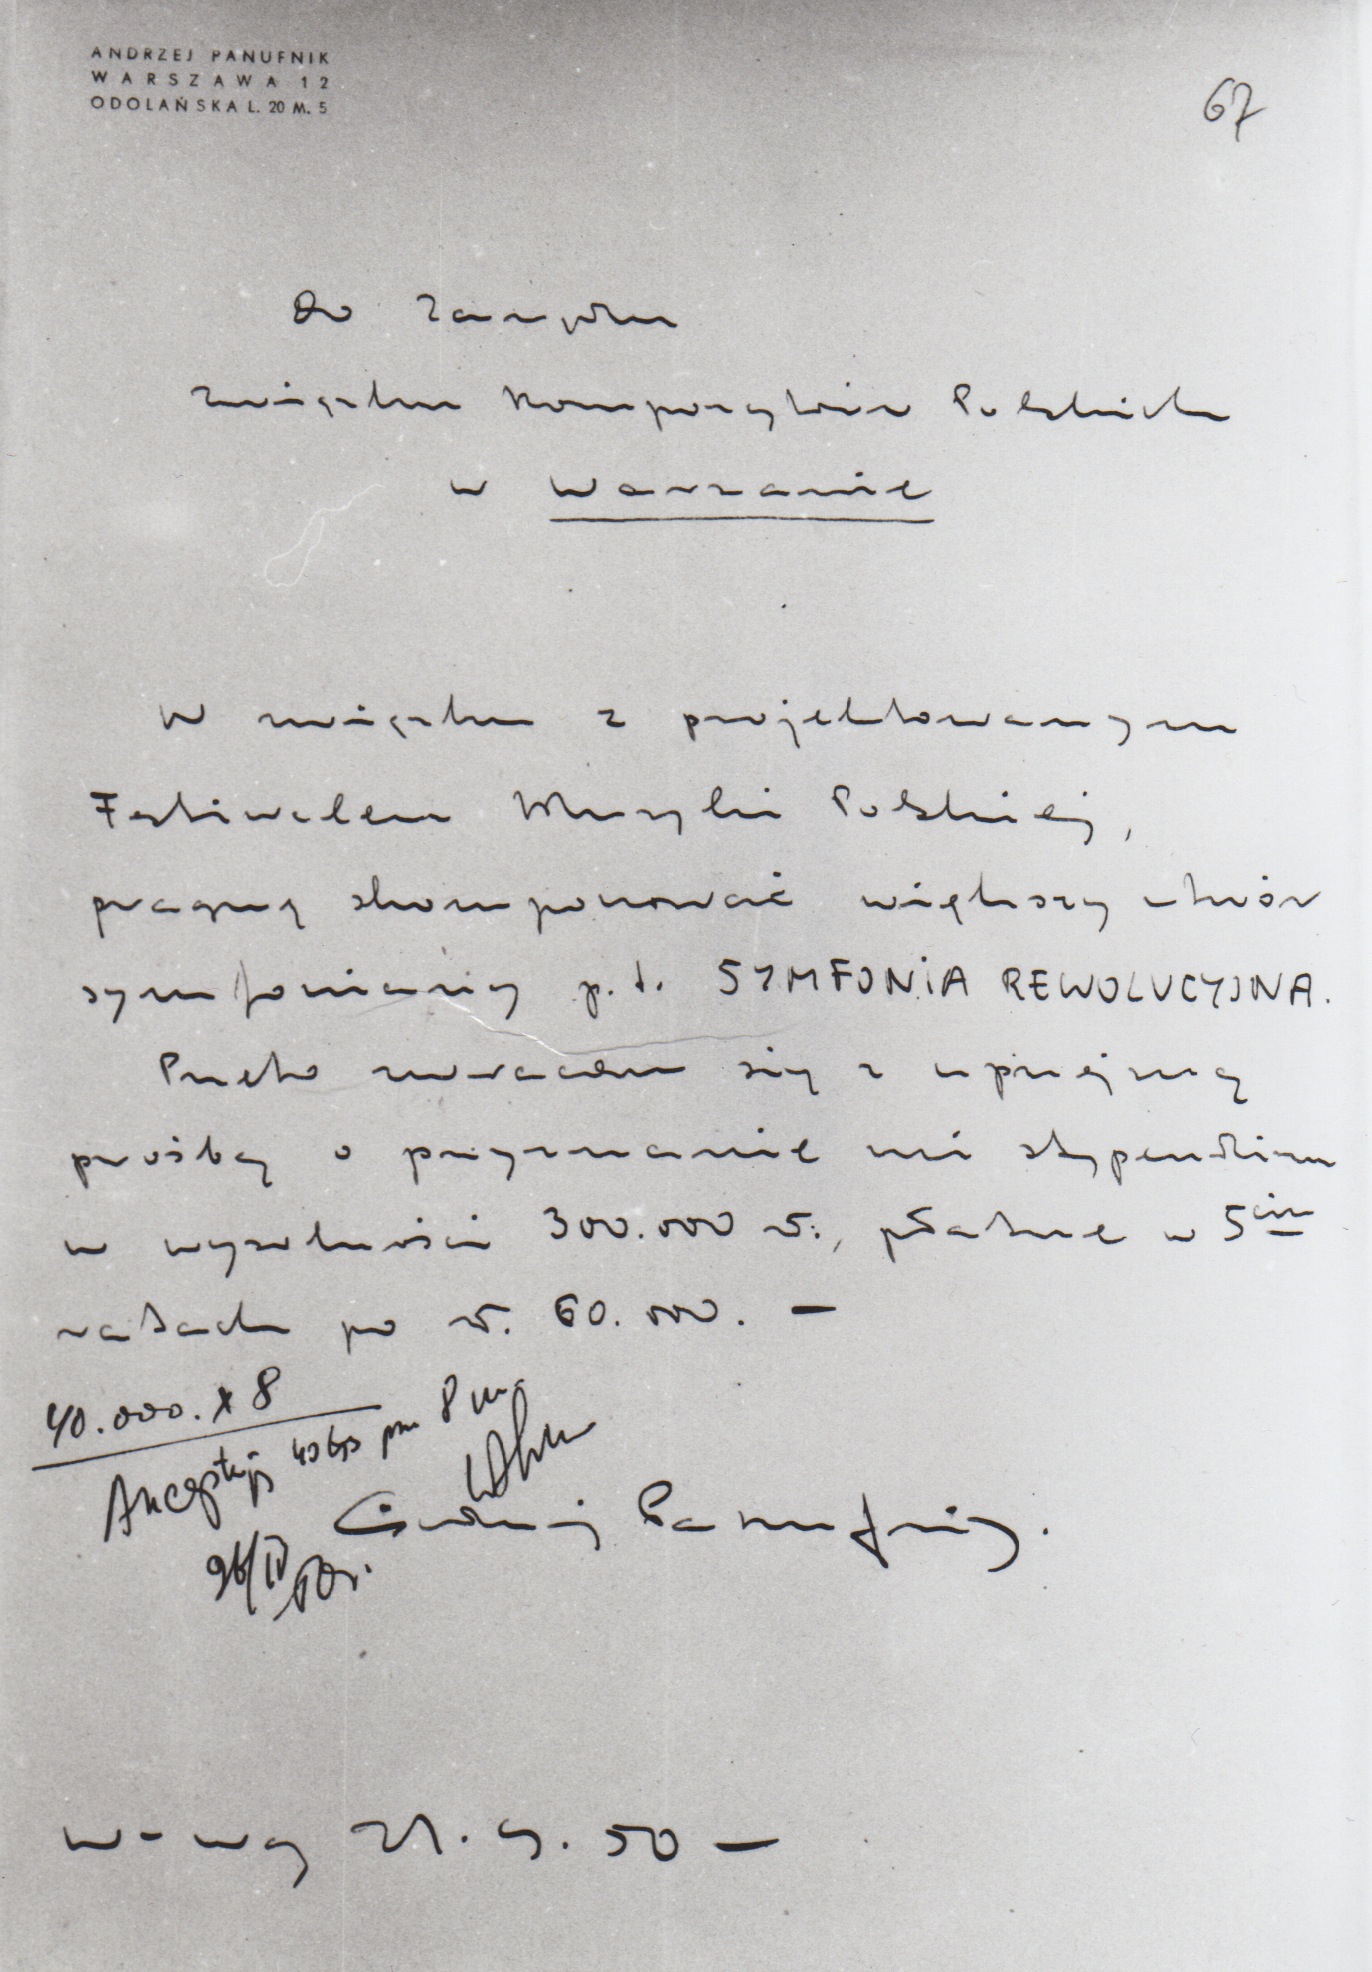 ANDRZEJ PANUFNIK
WARSZAWA 12
ODOLAŃSKA L. 20 M. 5
67
Do Zarządu
Związku Kompozytorów Polskich
w Warszawie
W związku z projektowanym
Festiwalem Muzyki Polskiej,
pragnę skomponować większy utwór
symfoniczny p.t. SYMFONIA REWOLUCYJNA.
Przeto zwracam się z uprzejmą
prośbą o przyznanie mi stypendium
w wysokości 300.000 zł., płatne w 5ciu
ratach po zł. 60.000. —
40.000. x 8
Akceptuję 40 tys 8 m.
Andrzej Panufnik.
26/IV 50 r.
W-wa 21.4.50 —